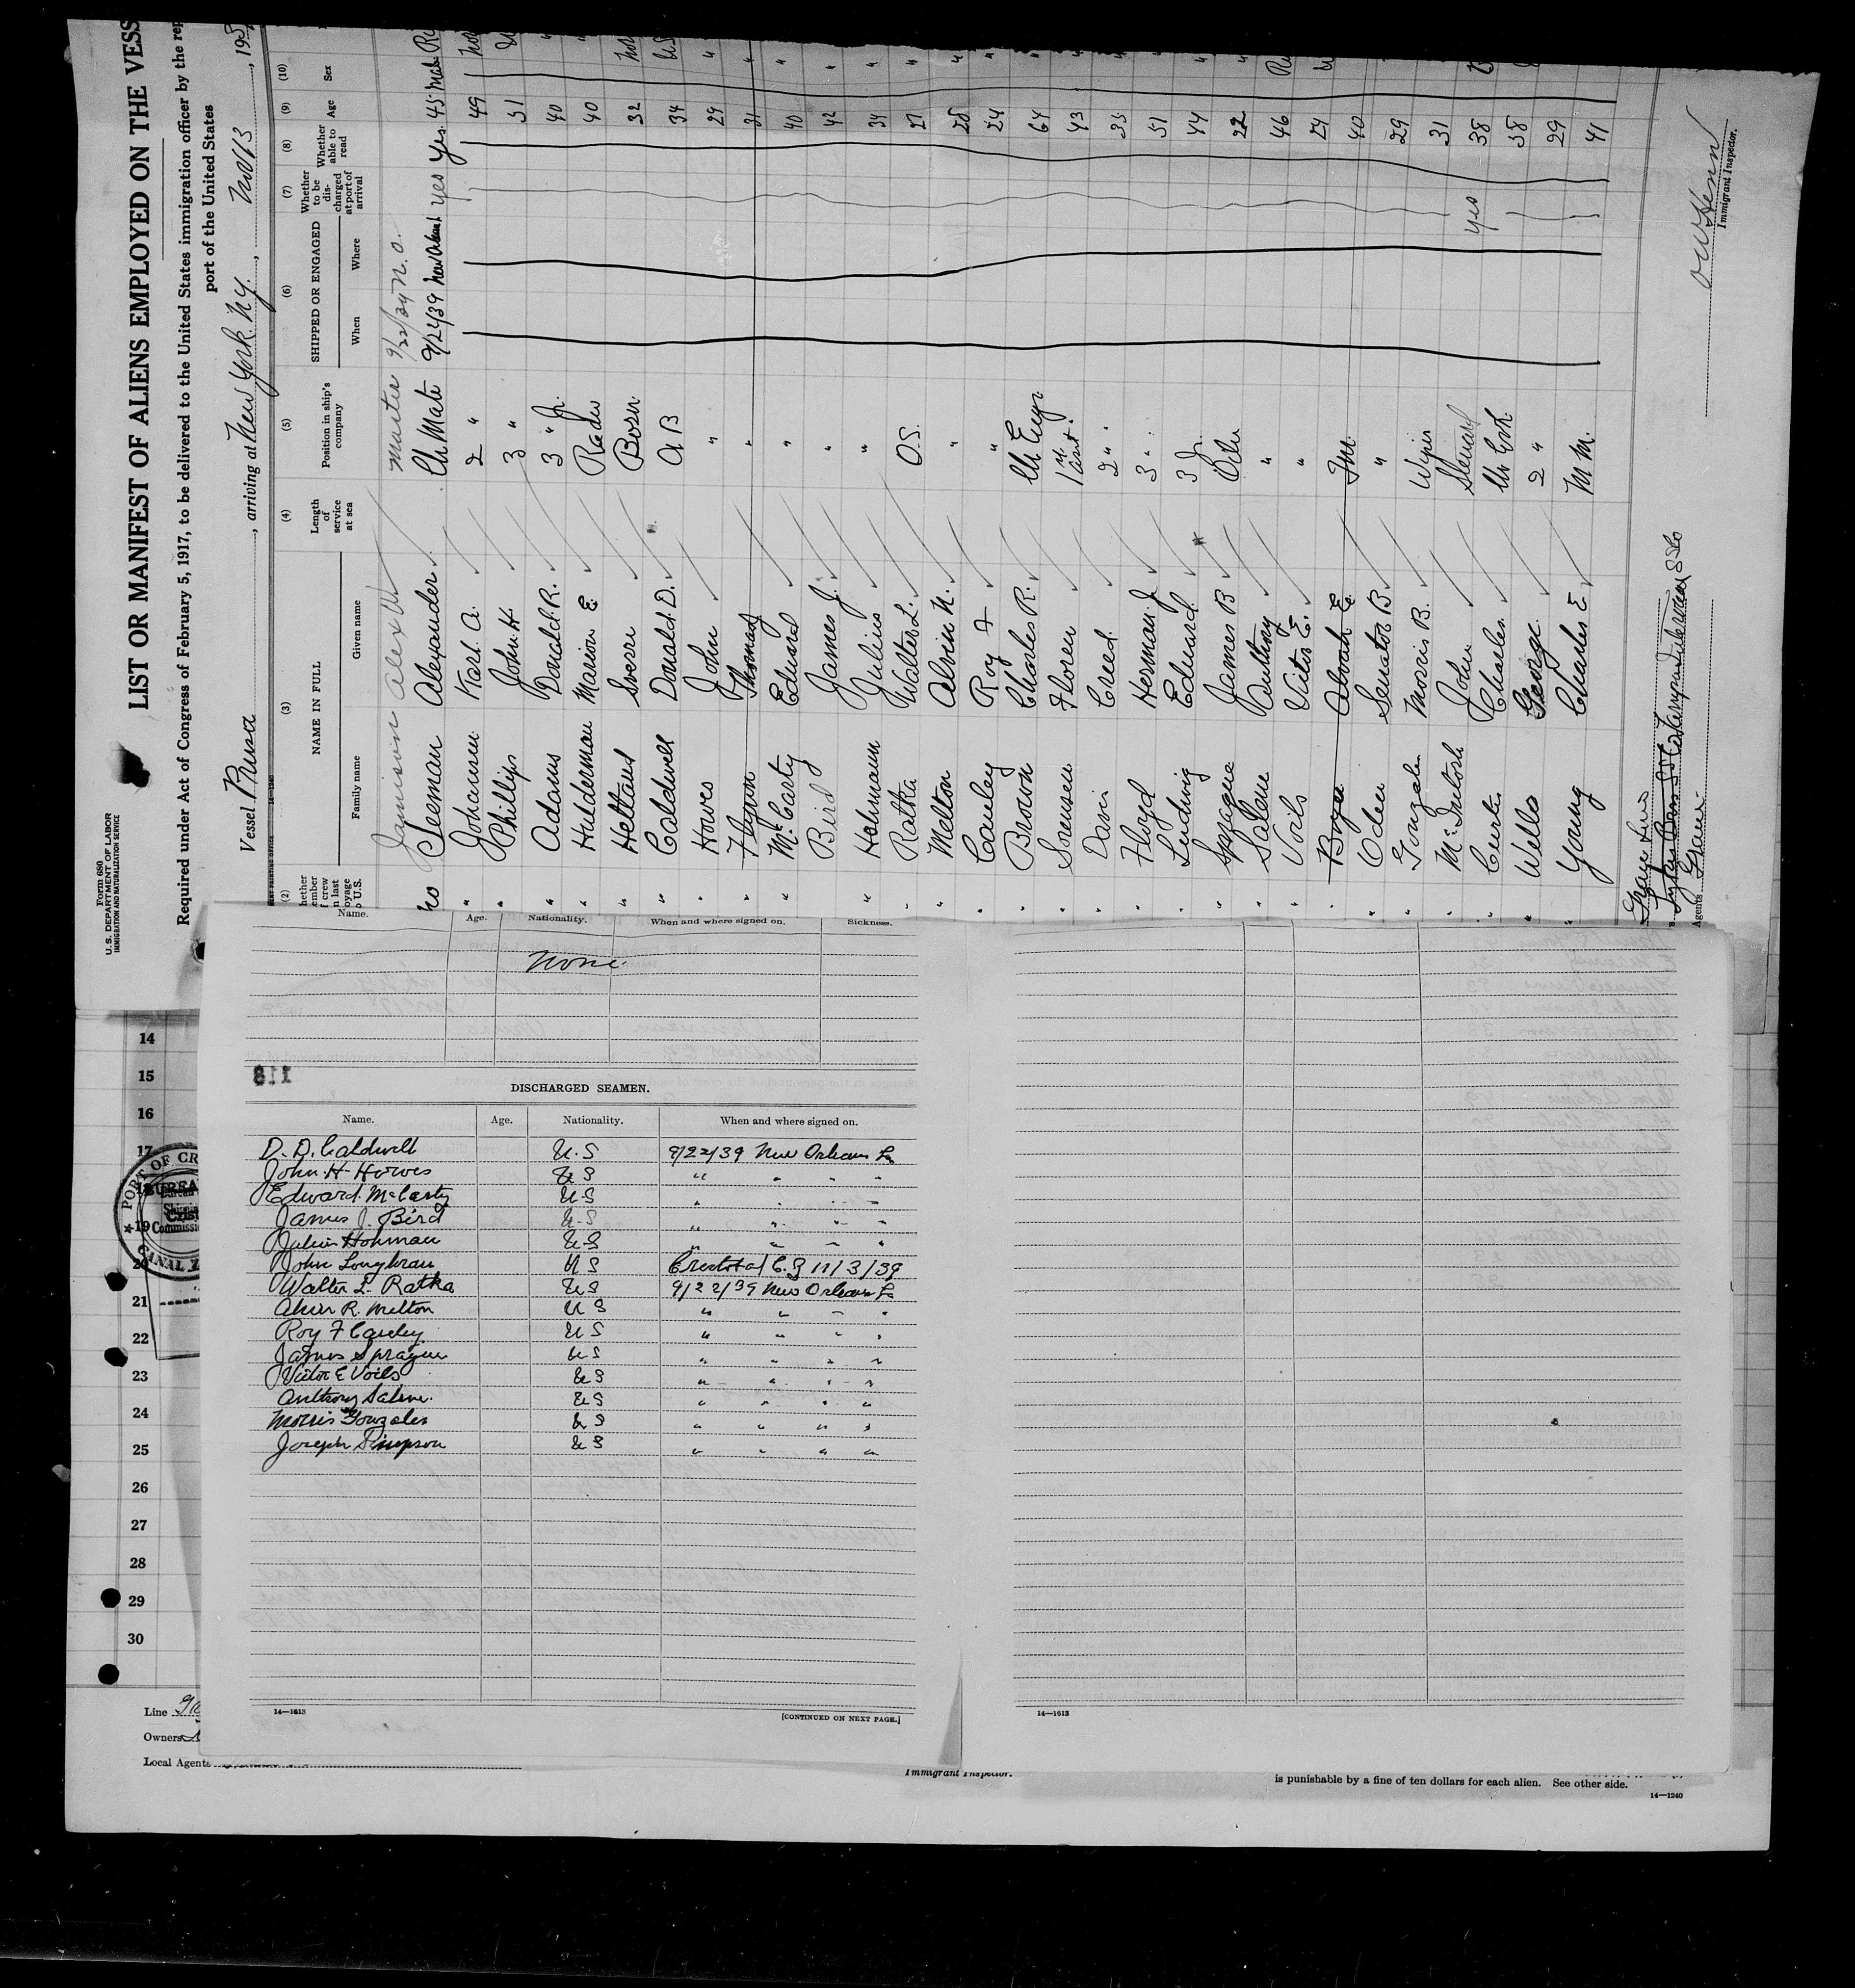 Form 680
U.S. DEPARTMENT OF LABOR
IMMIGRATION AND NATURALIZATION SERVICE
LIST OR MANIFEST OF ALIENS EMPLOYED ON THE VESS
Required under Act of Congress of February 5, 1917, to be delivered to the United States immigration officer by the rep
port of the United States
Vessel , arriving at New York. N.Y. , Nov 13 , 193
(2) (3) (4) (5) (6) (7) (8) (9) (10)
NAME IN FULL Length of service at sea Position in ship's company SHIPPED OR ENGAGED Whether to be discharged at port of arrival Whether able to read Age Sex
Family name Given name When Where
Jamison Alex W Master 9/22/39 N.O.
no Seeman Alexander Ch Mate 9/24/39 New Orleans yes yes 45 male
" Johansen Karl A. 2 " 49
" Phillips John H. 3 " 51
" Adams Donald R. 3 " Jr. 40
" Hulderman Marion E. Radio 40
" Hetland Sverr Bosn 32
" Caldwell Donald D. A B 34
" Howes John " 29
" Flynn Thomas " 31
" McCarty Edward " 40
Bird James J. " 42
" Hohmann Julius " 34
" Ratka Walter L. O.S. 27
" Melton Alvin N. " 28
" Cauley Roy F " 24
" Brown Charles R. Ch Engr 64
" Sorensen Floren 1st asst. 43
" Davis Creed 2 " 35
" Floyd Herman J 3 " 51
" Ludwig Edward 3 Jr. 44
" Sprague James B Oiler 22
" Salene Anthony " 46
" Voils Victor E. " 24
40
" Oden Senator B. " 29
" Gonzales Morris B. Wiper 31
" McIntosh John Steward yes 38
" Curtis Charles Ch Cook 58
" Wells George 2 " 29
" Young Charles E M.M. 41
Agents Grace
Immigrant Inspector.
Name. Age. Nationality. When and where signed on. Sickness.
None.
811
DISCHARGED SEAMEN.
Name. Age. Nationality. When and where signed on.
D. D. Caldwell U.S 9/22/39 New Orleans La
John H Howes U S " " " "
Edward McCarty U S " " " "
James J. Bird U.S " " " "
Julius Hohman U.S " " " "
John Loughran U S Cristobal C.Z 11/3/39
Walter L. Ratka U S 9/22/39 New Orleans La
Alvin R. Melton U S " " " "
Roy F Cauley U S " " " "
James Sprague U S " " " "
Victor E Voils U S " " " "
Anthony Salene. U S " " " "
Morris Gonzales U S " " " "
Joseph Simpson U S " " " "
14—1613 [CONTINUED ON NEXT PAGE.]
14—1613
14
15
16
17
18
19
20
21
22
23
24
25
26
27
28
29
30
PORT OF CR
BUREA
Commissio
CANAL Z
Line
Owners
Local Agents
Immigrant Inspector.
is punishable by a fine of ten dollars for each alien. See other side.
14—1240